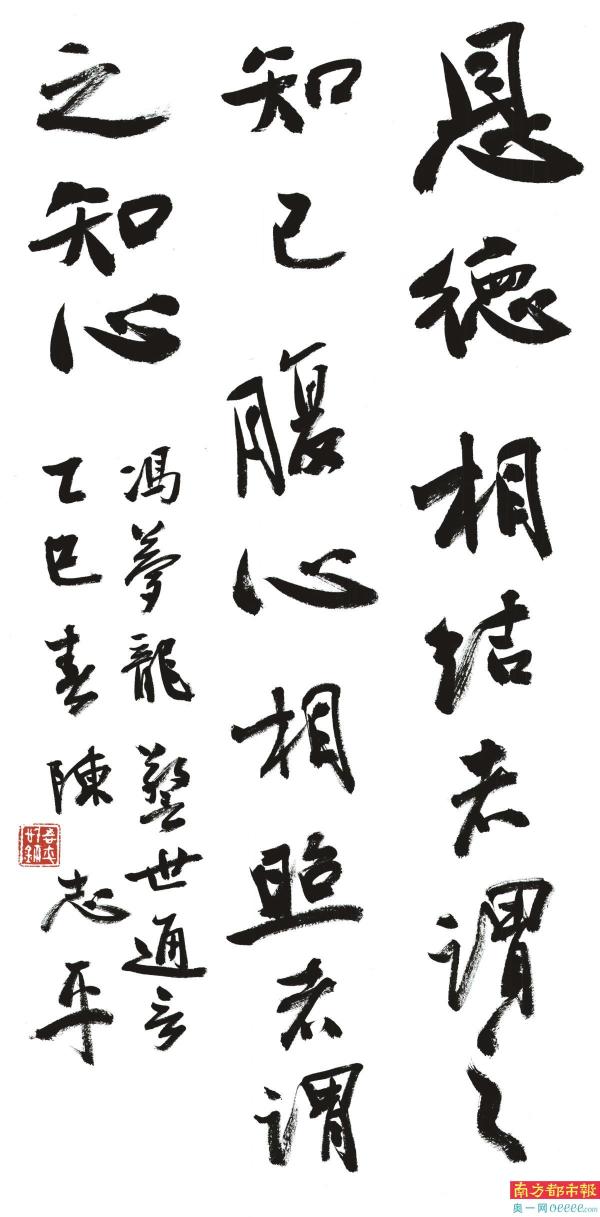 恩德相結者謂之
知己腹心相照者謂
之知心
馮夢龍警世通言
乙巳春陳志平
南方都市報
奥一网oeeee.com